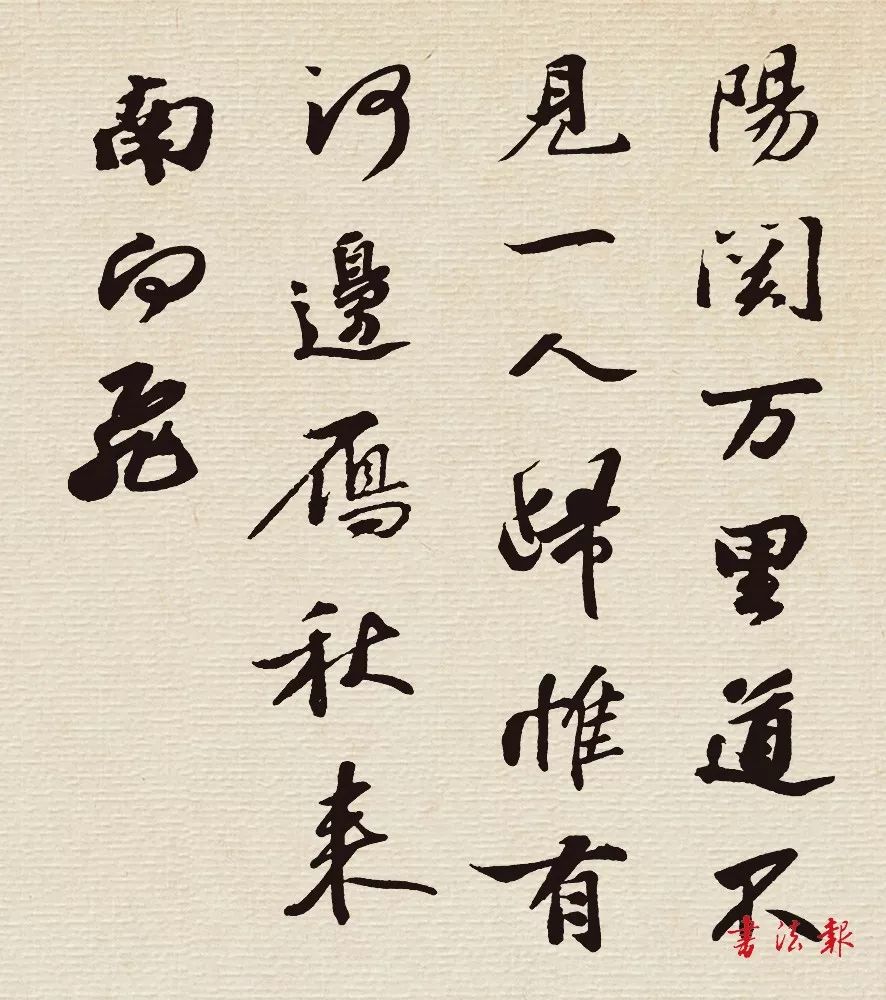 陽関万里道不
見一人歸惟有
河邊鴈秋来
南向飛
書法報